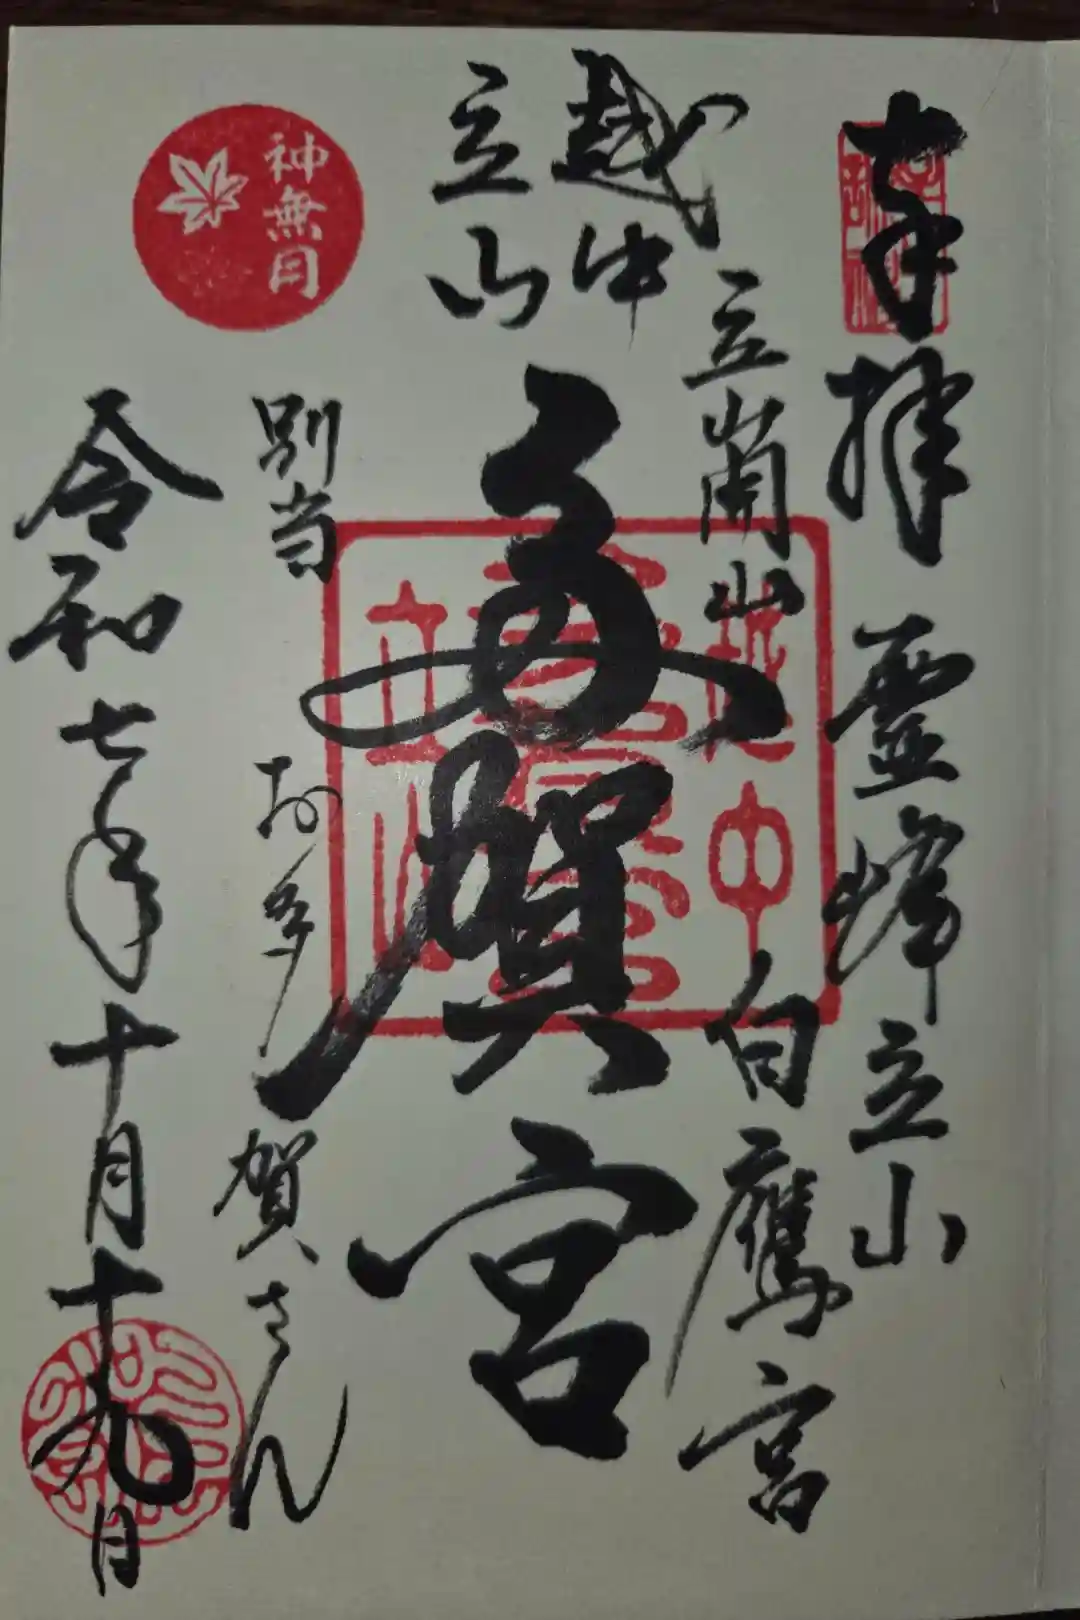 奉拝 霊峰立山
立山開山 白鷹宮
越中
立山
多賀宮
越中
立山
神無月
別当 お多賀さん
令和七年十月十九日